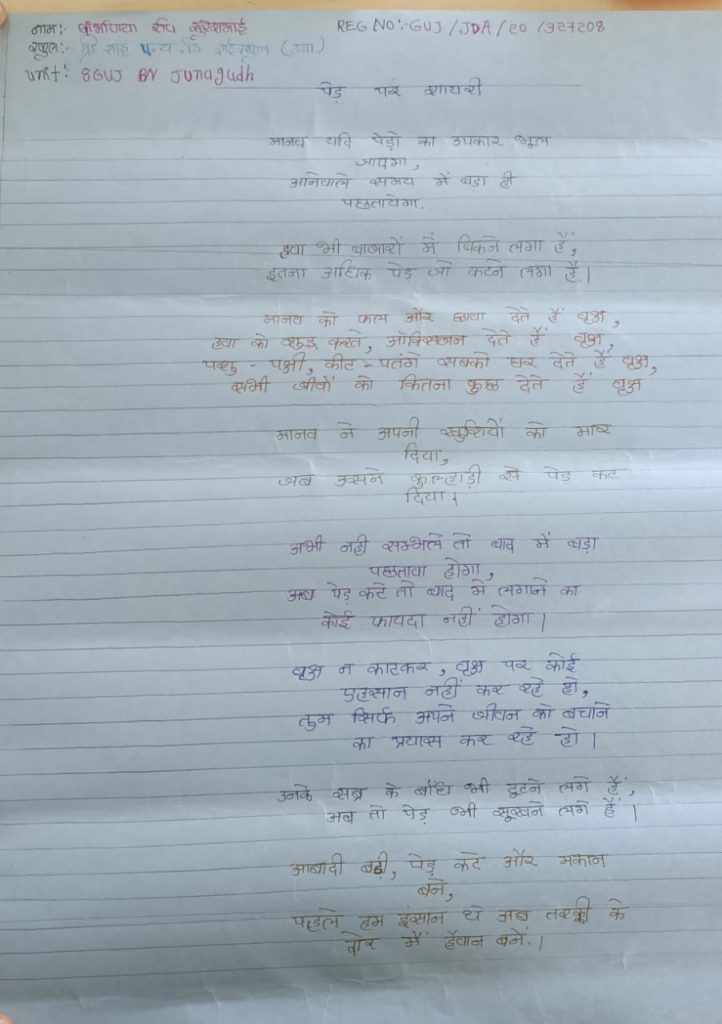 नाम:- रुप सुरेशभाई REG NO:-GUJ/JDA/20/327208
स्कुल:- श्री
unit: 8GUJ BN Junagadh
पेड़ पर शायरी
मानव यदि पेड़ो का उपकार भूल
जाएगा,
आनेवाले समय में बड़ा ही
पछतायेगा.
हवा भी बाजारों में बिकने लगा हैं,
इतना अधिक पेड़ जो कटने लगा है।
मानव को फल और छाया देते हैं वृक्ष,
हवा को शुद्ध करते, ऑक्सिजन देते हैं वृक्ष,
पशु-पक्षी, कीट-पतंगे सबको घर देते हैं वृक्ष,
सभी जीवों को कितना कुछ देते हैं वृक्ष.
मानव ने अपनी खुशियों को मार
दिया,
जब उसने कुल्हाड़ी से पेड़ काट
दिया।
अभी नही सम्भले तो बाद में बड़ा
पछतावा होगा,
अब पेड़ कटे तो बाद में लगाने का
कोई फायदा नहीं होगा।
वृक्ष न काटकर, वृक्ष पर कोई
एहसान नहीं कर रहे हो,
तुम सिर्फ अपने जीवन को बचाने
का प्रयास कर रहे हो।
उनके सब्र के बाँध भी टूटने लगे हैं,
अब तो पेड़ भी सूखने लगे हैं।
आबादी बढ़ी, पेड़ कटे और मकान
बने,
पहले हम इंसान थे अब तरक्की के
दोर में हैवान बनें।